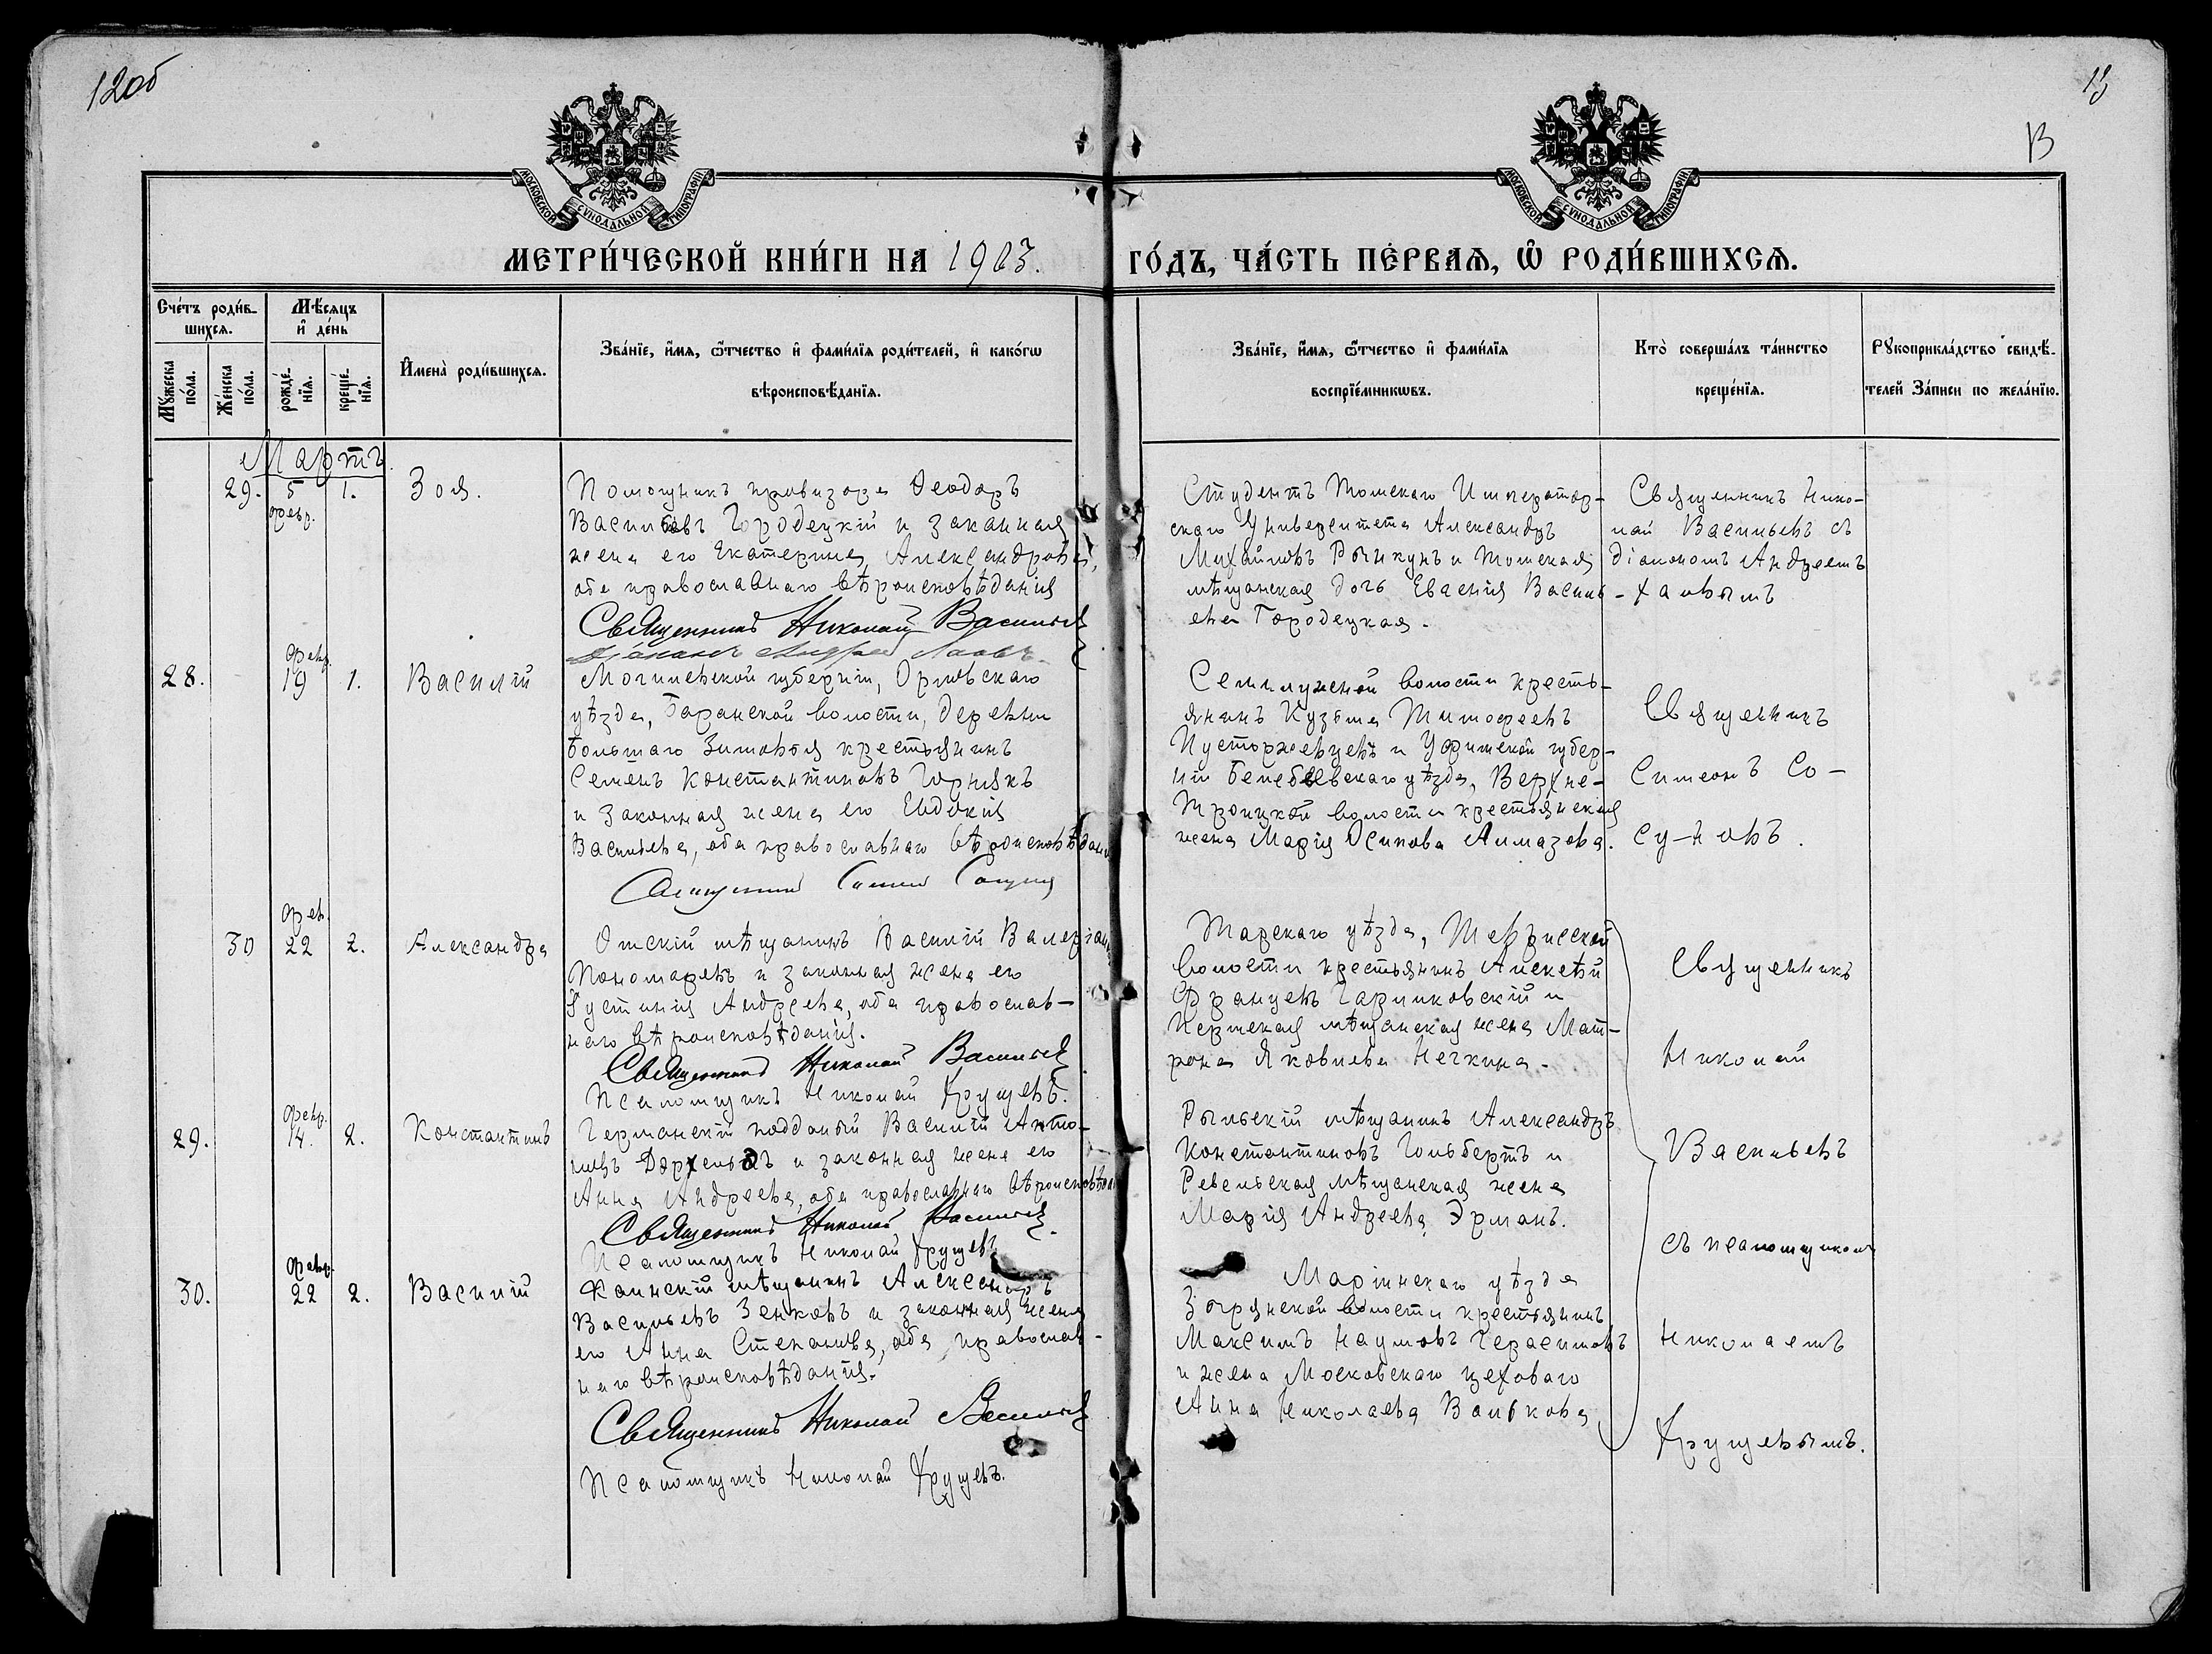 12об
13
13
МОСКОВСКОЙ СѴНОДАЛЬНОЙ ТИПОГРАФІИ
МОСКОВСКОЙ СѴНОДАЛЬНОЙ ТИПОГРАФІИ
МЕТРИ́ЧЕСКОЙ КНИ́ГИ НА 1903.
ГО́ДЪ, ЧА́СТЬ ПЕ́РВАЯ, Ѡ РОДИ́ВШИХСЯ.
Сче́тъ роди́в-
шихся.
Мѣсяцъ
и де́нь
Мꙋжеска по́ла.
Же́нска по́ла.
рожде́-
нїя.
креще́-
нїя.
Имена̀ роди́вшихся.
Зва́нїе, и́мя, ѻ́тчество и фами́лїя роди́телей, и како́гѡ
вѣроисповѣ́данїя.
Зва́нїе, и́мя, ѻ́тчество и фами́лїя
воспрїе́мникѡвъ.
Кто̀ соверша́лъ та́инство
креще́нїя.
Рꙋкоприкла́дство свидѣ́-
телей за́писи по жела́нїю.
Мартъ.
29.
5
февр.
1.
Зоя.
Помощникъ провизора Ѳеодоръ
Васильевъ Городецкій и законная
жена его Екатерина Александрова,
оба православнаго вѣроисповѣданія
Священникъ Николай Васильевъ
Діаконъ Андрей
Студентъ Томскаго Император-
скаго Университета Александръ
Михайловъ Рычкунъ и Томская
мѣщанская дочь Евгенія Василь-
ева Городецкая.
Священникъ Нико-
лай Васильевъ съ
діакономъ Андреемъ
28.
февр.
19
1.
Василій
Могилевской губерніи, Оршевскаго
уѣзда, Баранской волости, деревни
большаго Зимовья крестьянинъ
Семенъ Константиновъ Горнякъ
и законная жена его Евдокія
Васильева, оба православнаго вѣроисповѣдан
Семилужной волости кресть-
янинъ Кузьма Тимофеевъ
Пусторжевцевъ и Уфимской губер-
ніи Белебеевскаго уѣзда, Верхне-
Троицкой волости крестьянская
жена Марія Осипова Алмазова.
Священникъ
Симеонъ Со-
суновъ.
30
фев.
22
2.
Александра
Омскій мѣщанинъ Василій Валеріан
Пономаревъ и законная жена его
Іустинія Андреева, оба православ-
наго вѣроисповѣданія.
Священникъ Николай Васильевъ
Псаломщикъ Николай Хрущевъ.
Тарскаго уѣзда, Тевризской
волости крестьянинъ Алексѣй
Францевъ Гарликовскій и
Пермская мѣщанская жена Мат-
рона Яковлева Нечкина.
Священникъ
Николай
Васильевъ
съ псаломщикомъ
Николаемъ
Хрущевымъ.
29.
февр.
14.
2.
Константинъ
Германскій подданый Василій Анто-
новъ и законная жена его
Анна Андреева, оба православнаго вѣроисповѣдан
Священникъ Николай Васильевъ
Псаломщикъ Николай Хрущевъ
Рыльскій мѣщанинъ Александръ
Константиновъ Гольбертъ и
Ревельская мѣщанская жена
Марія Андреева Эрманъ.
30.
февр.
22
2.
Василій
Каинскій мѣщанинъ Александръ
Васильевъ Зенковъ и законная жена
его Анна Степанова, оба православ-
наго вѣроисповѣданія.
Священникъ Николай Васильевъ
Псаломщикъ Николай Хрущевъ.
Маріинскаго уѣзда
волости крестьянинъ
Максимъ Наумовъ Герасимовъ
и жена Московскаго цеховаго
Анна Николаева Валькова